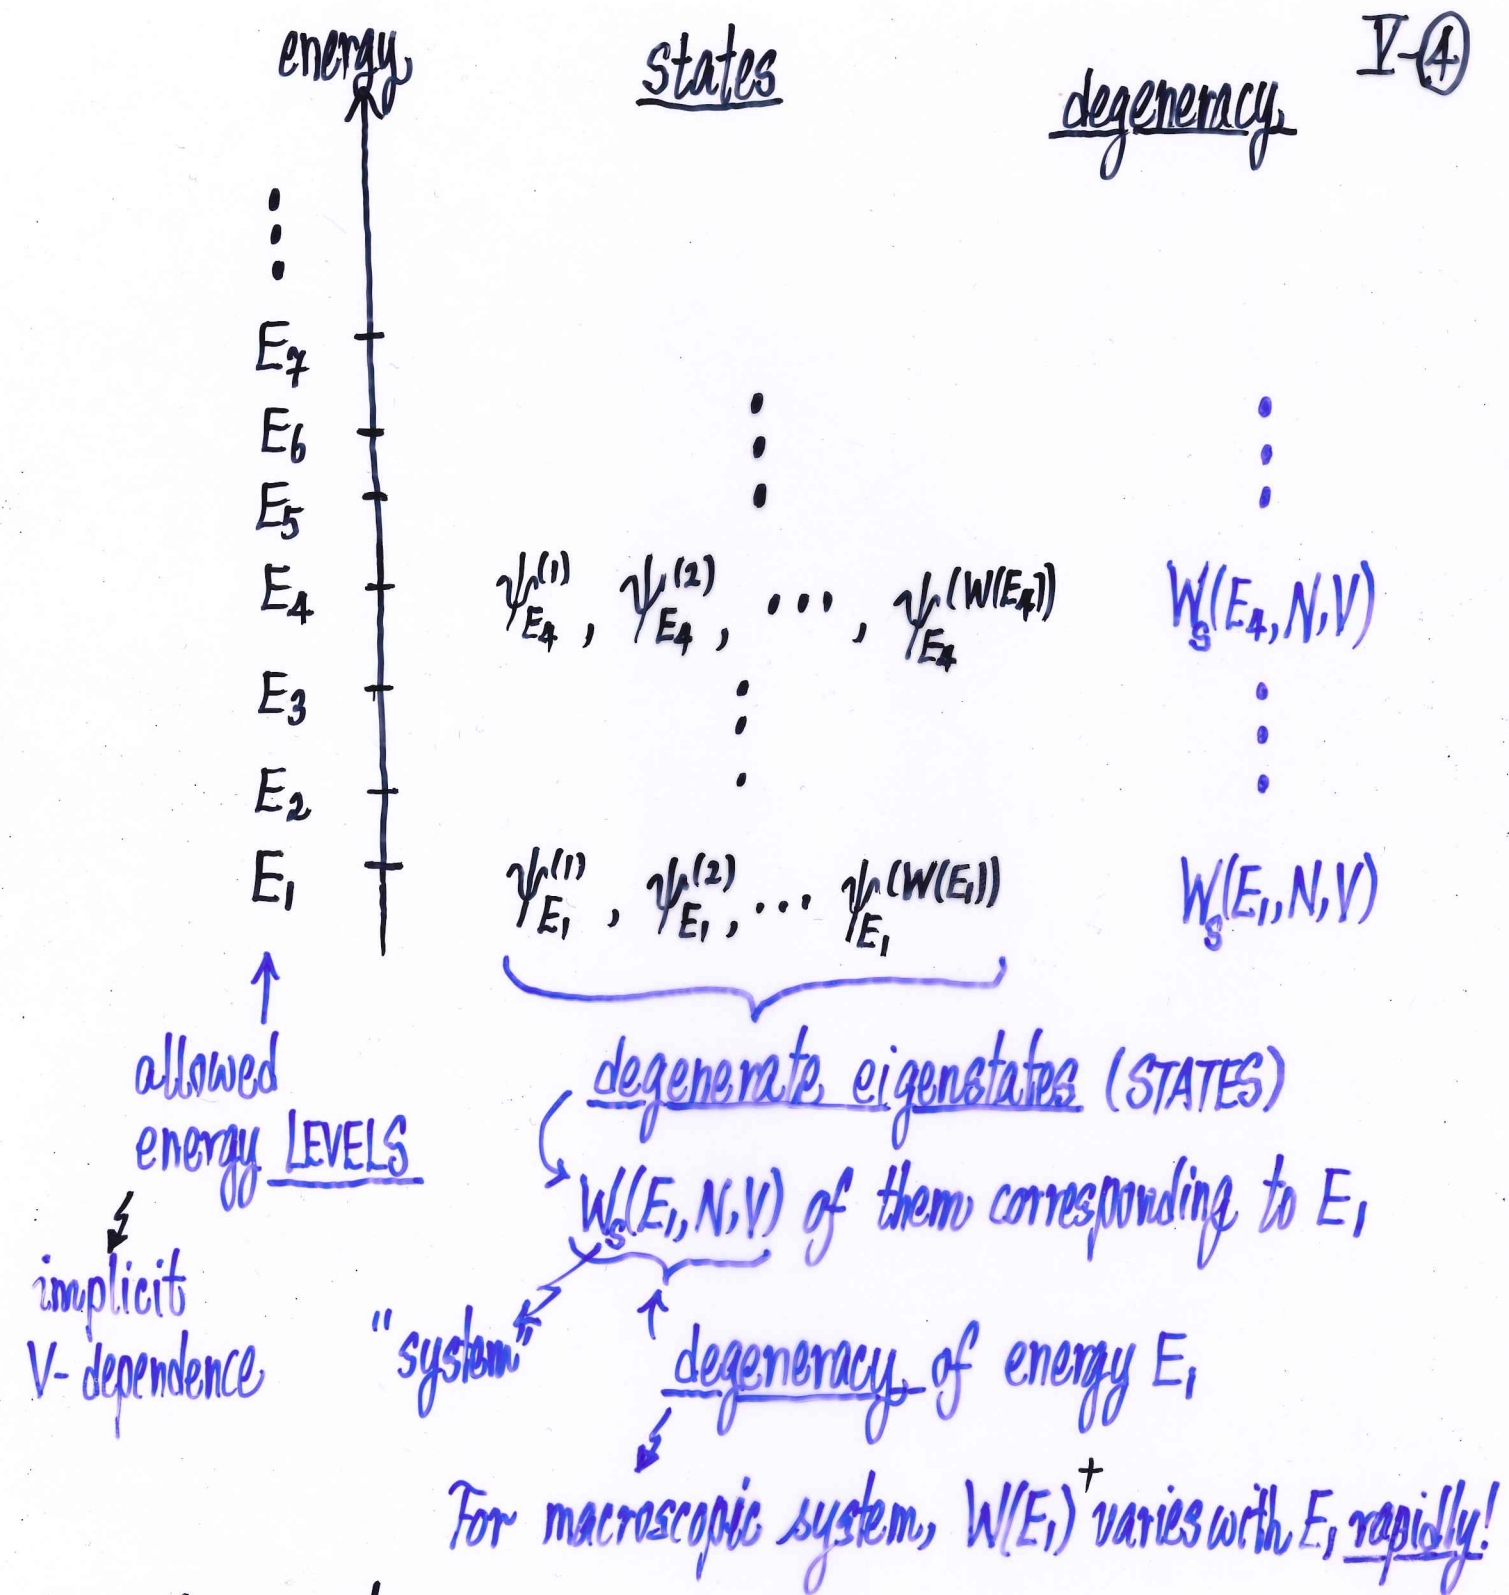 V-④
energy states degeneracy
⋮
E₇
E₆ ⋮ ⋮
E₅
E₄ ψ_{E₄}^{(1)}, ψ_{E₄}^{(2)}, ⋯, ψ_{E₄}^{(W(E₄))} W_s(E₄,N,V)
E₃ ⋮ ⋮
E₂
E₁ ψ_{E₁}^{(1)}, ψ_{E₁}^{(2)}, ⋯ ψ_{E₁}^{(W(E₁))} W_s(E₁,N,V)
allowed
energy LEVELS
implicit
V-dependence
degenerate eigenstates (STATES)
W_s(E₁,N,V) of them corresponding to E₁
"system"
degeneracy of energy E₁
For macroscopic system, W(E₁)⁺ varies with E₁ rapidly!